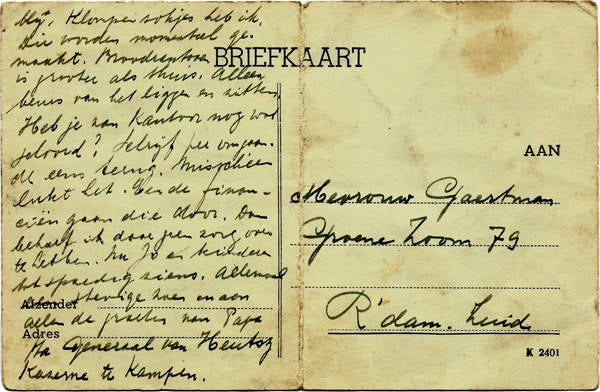 blij. Klompen sokjes heb ik.
Die worden momenteel ge-
maakt. Broodrantsoen
is grooter als thuis. Alleen
beurs van het liggen en zitten.
Heb je van Kantoor nog wat
gehoord? Schrijf per omgaan-
de eens terug. Misschien
lukt het. En de finan-
ciën gaan die door. Dan
behoef ik daar geen zorg over
te hebben. Nu Jo en kinderen
tot spoedig ziens. Allemaal
stevige zoen en aan
allen de groeten van Papa
Generaal van Heutsz
Kazerne te Kampen.
Afzender
Adres
BRIEFKAART
AAN
Mevrouw Gaertman
Groene Zoom 79
R'dam. Zuid
K 2401